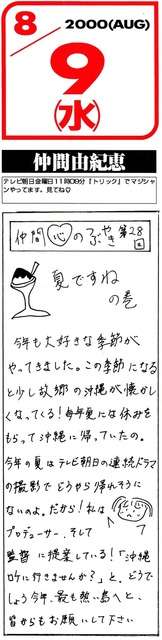 8
2000(AUG)
9
(水)
仲間由紀恵
テレビ朝日金曜日11時09分『トリック』でマジシャ
ンやってます。見てね♡
仲間心のつぶやき 第28回
夏ですね
の巻
今年も大好きな季節が
やってきました。この季節になる
と少し故郷の沖縄が懐かし
くなってくる!毎年夏には休みを
もらって沖縄に帰っていたの。
今年の夏はテレビ朝日の連続ドラマ
の撮影でどうやら帰れそうに
ないのよ。だから!私は
プロデューサー、そして
監督に提案している!「沖縄
ロケに行きませんか?」と、どうで
しょう今年、最も熱い島へと、
皆からもお願いして下さい